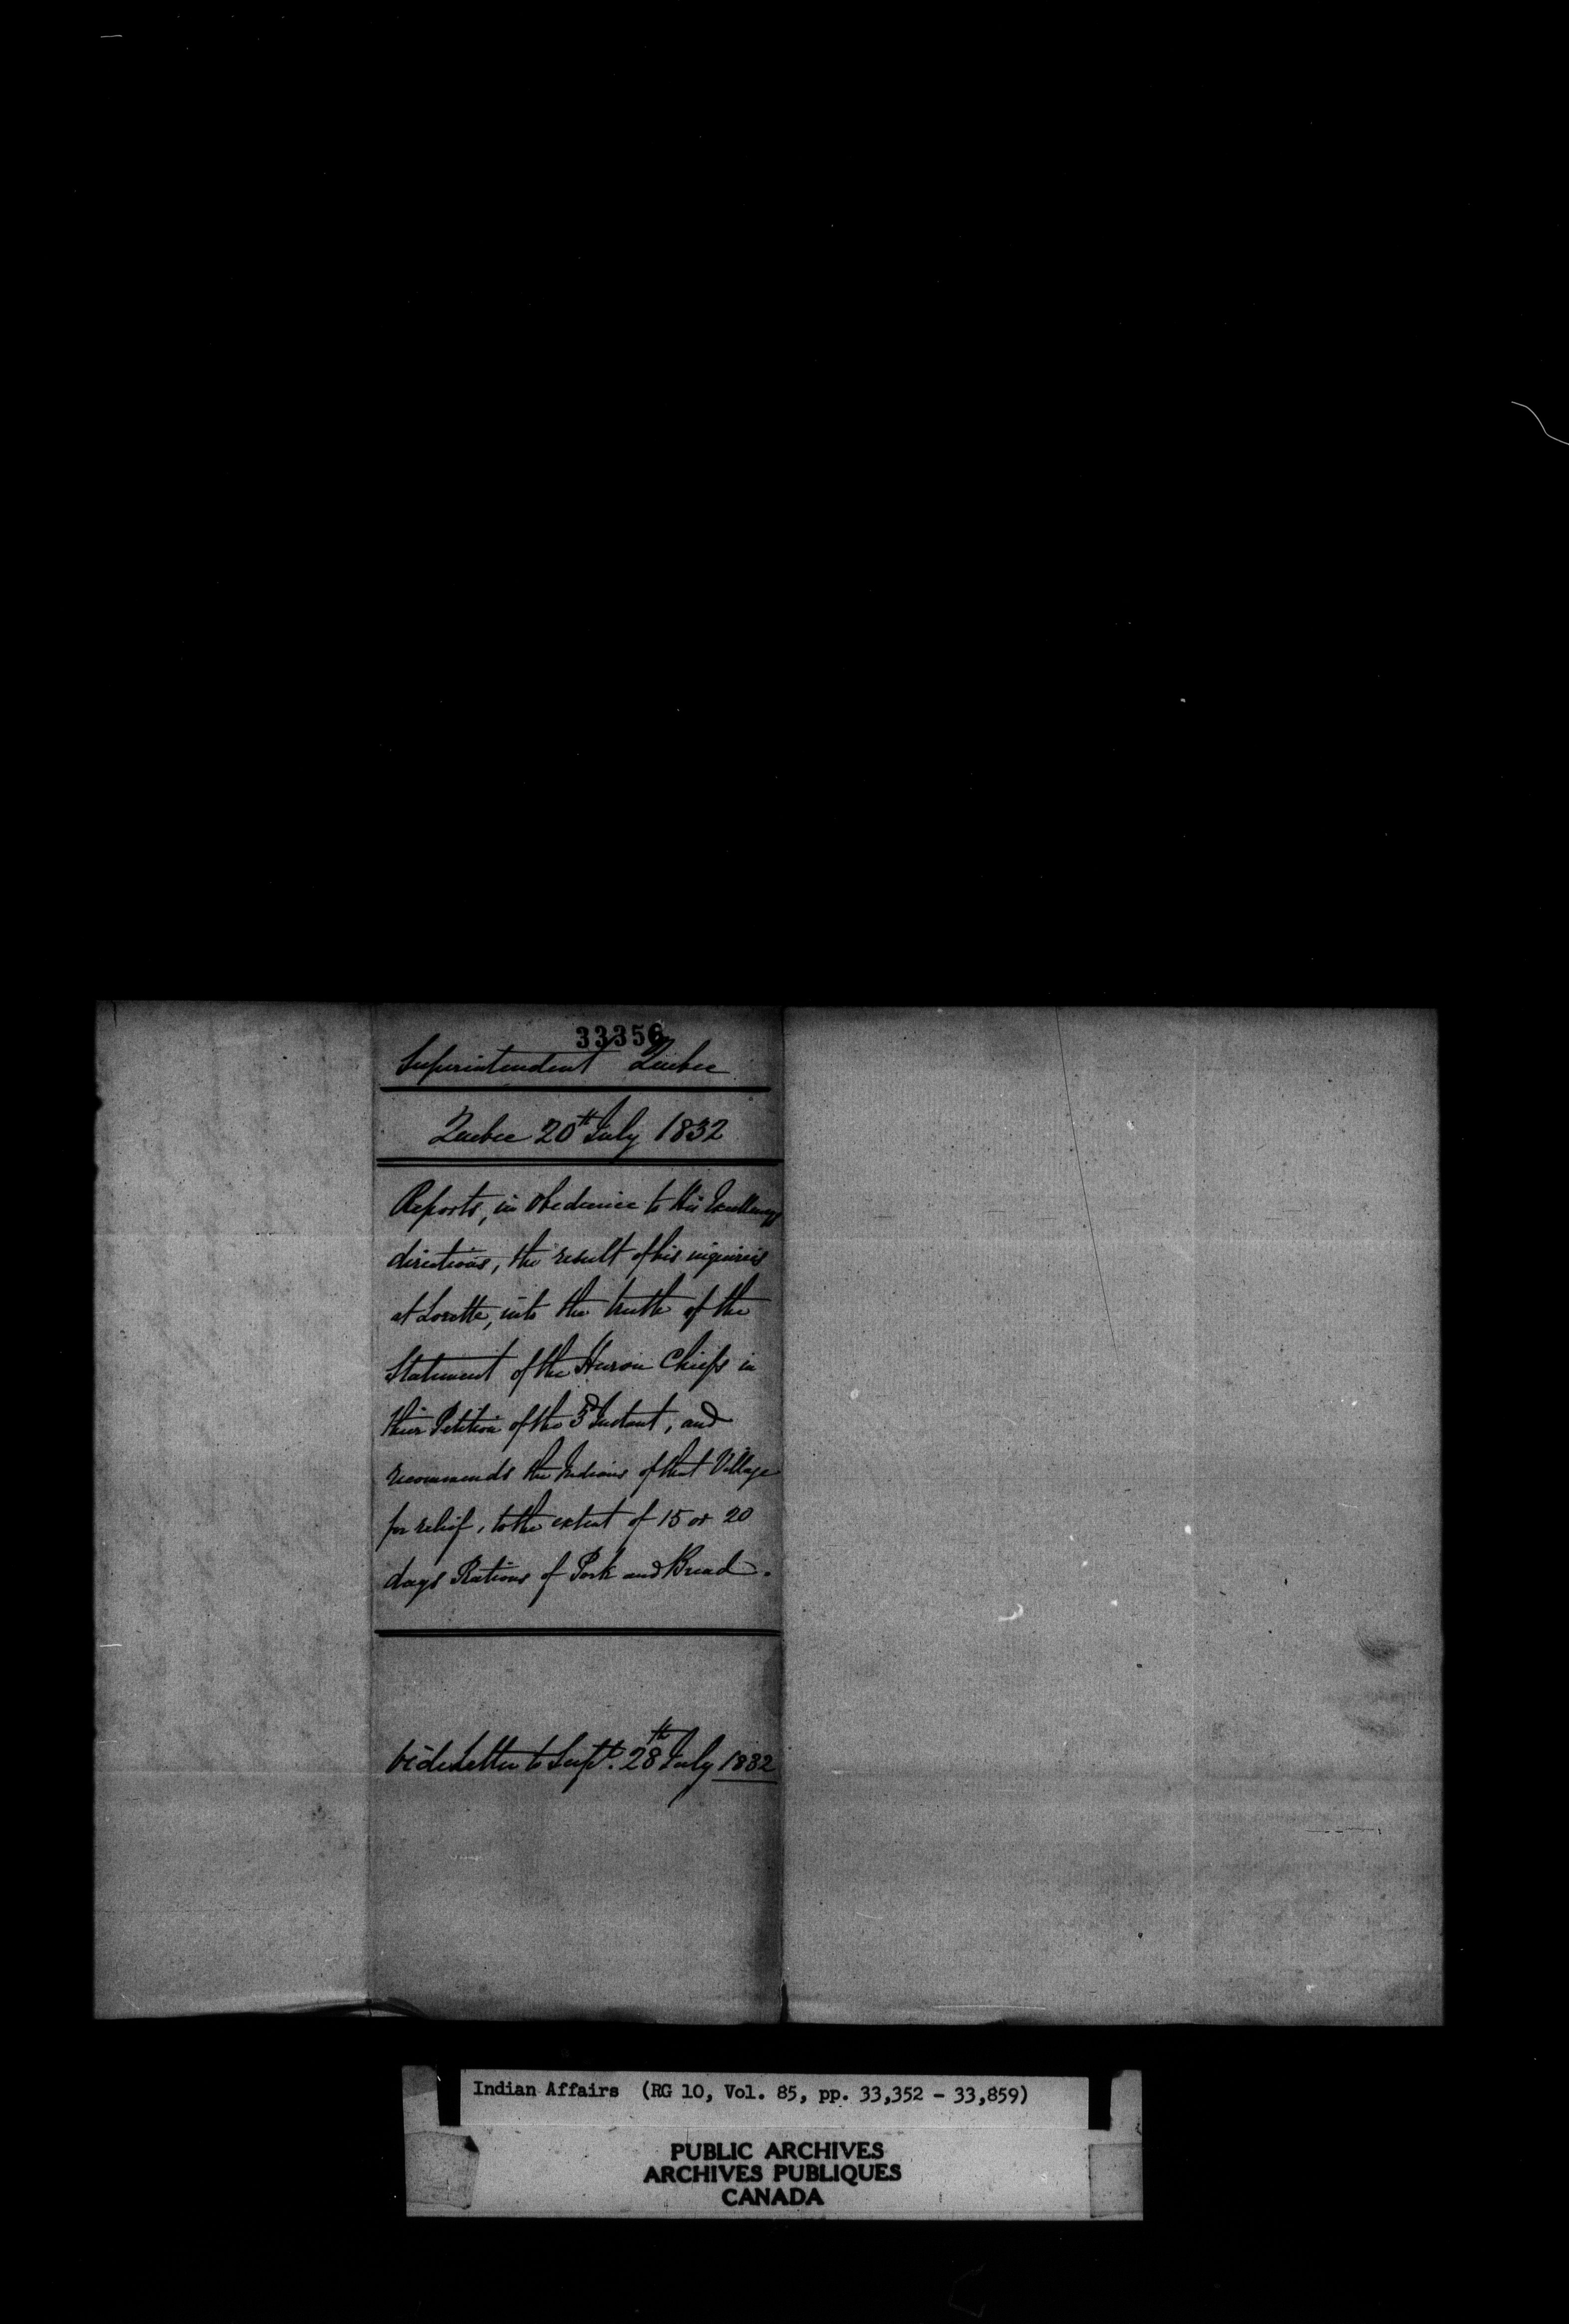 33356
Superintendent Quebec
Quebec 20th July 1832
Reports, in obedience to His Excellencys
directions, the result of his inquiries
at Lorette, into the truth of the
Statement of the Huron Chiefs in
their Petition of the 3d Instant, and
recommends the Indians of that Village
for relief, to the extent of 15 or 20
days Rations of Pork and Bread.
Vide Letter to Supt. 28th July 1832
Indian Affairs (RG 10, Vol. 85, pp. 33,352 - 33,859)
PUBLIC ARCHIVES
ARCHIVES PUBLIQUES
CANADA